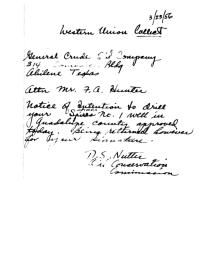 3/23/56
Western Union Collect
General Crude Oil Company
314 Bldg
Abilene Texas
Attn Mr. F. A. Hunter
Notice of Intention to drill
your No. 1 well in
Guadalupe County approved
today. Being returned however
for your signature.
D. S. Nutter
Oil Conservation
Commission